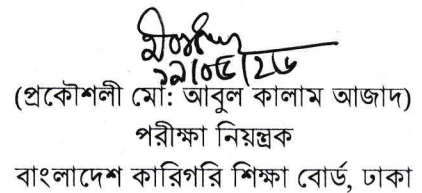 ১৯/০৫/২৬
(প্রকৌশলী মো: আবুল কালাম আজাদ)
পরীক্ষা নিয়ন্ত্রক
বাংলাদেশ কারিগরি শিক্ষা বোর্ড, ঢাকা